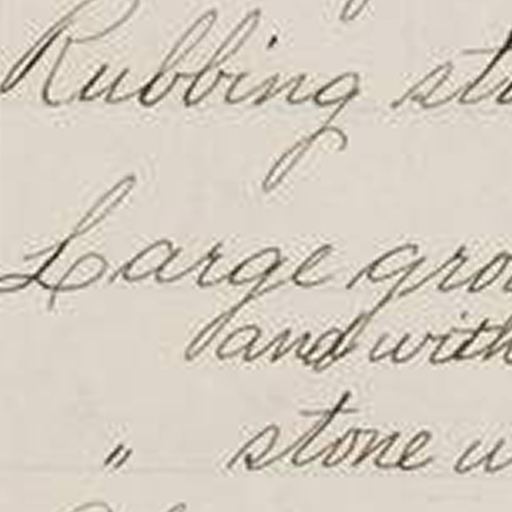 Rubbing
Large
and with
" stone